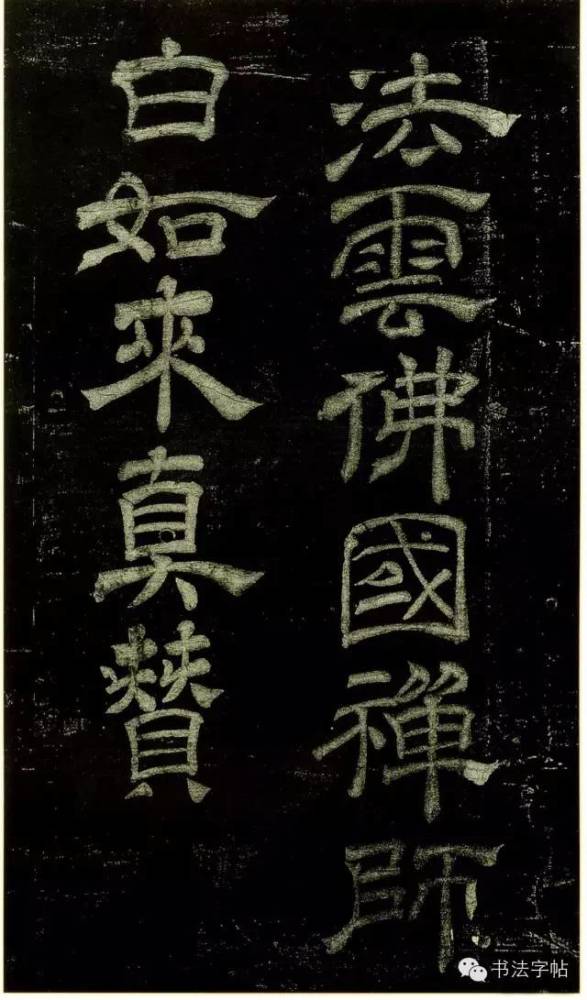 法雲佛國禪師
白如來真贊
书法字帖